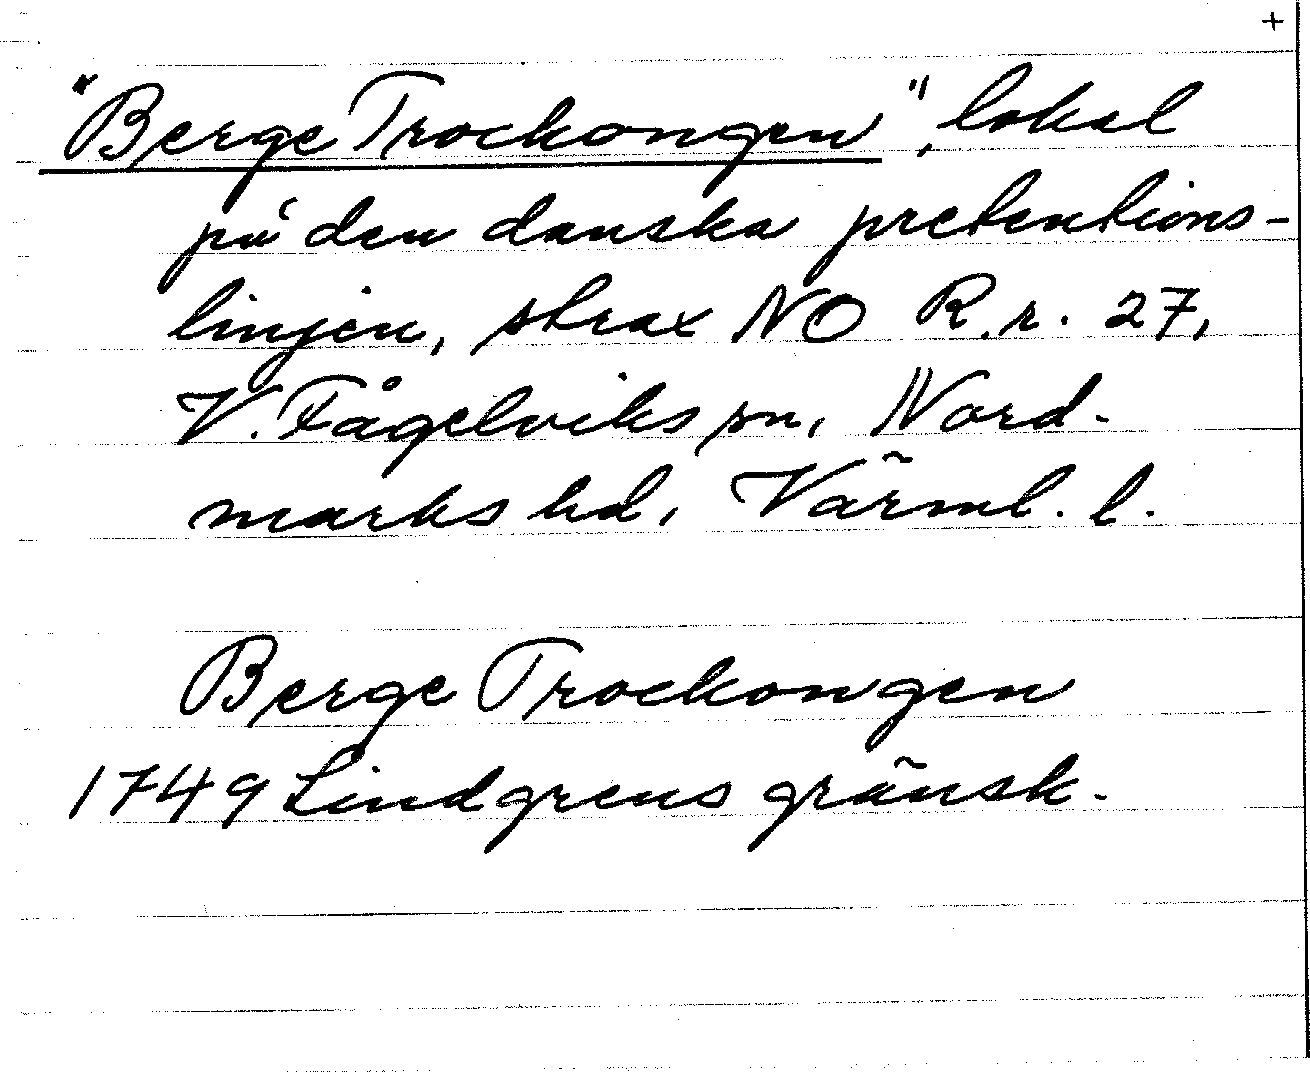 +
"Berge Trockongen", lokal
på den danska pretentions-
linjen, strax NO R.r. 27,
V. Fågelviks sn, Nord-
marks hd, Värml. l.
Berge Trockongen
1749 Lindgrens gränsk.